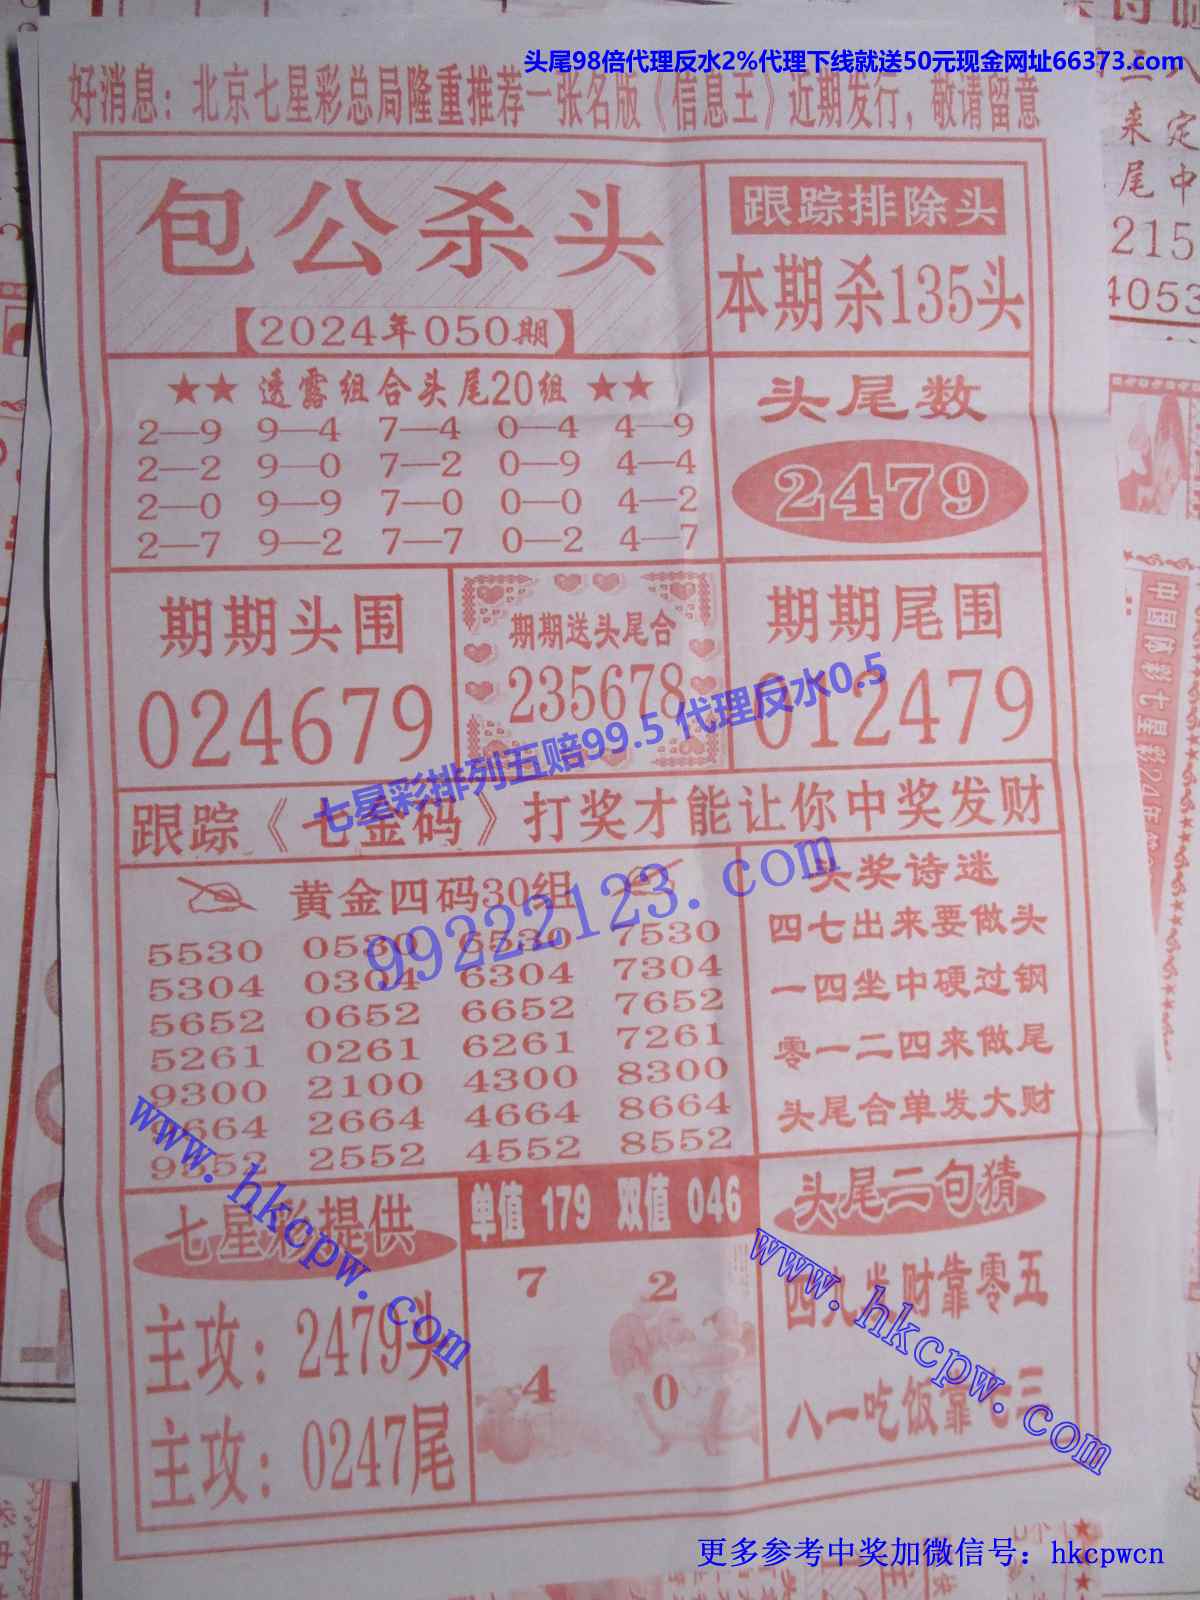 头尾98倍代理反水2%代理下线就送50元现金网址66373.com
好消息：北京七星彩总局隆重推荐一张名版《信息王》近期发行，敬请留意
包公杀头
【2024年050期】
跟踪排除头
本期杀135头
★★ 透露组合头尾20组 ★★
2—9 9—4 7—4 0—4 4—9
2—2 9—0 7—2 0—9 4—4
2—0 9—9 7—0 0—0 4—2
2—7 9—2 7—7 0—2 4—7
头尾数
2479
期期头围
024679
期期送头尾合
235678
期期尾围
012479
七星彩排列五赔99.5 代理反水0.5
跟踪《七金码》打奖才能让你中奖发财
黄金四码30组
99222123.com
5530 0530 6530 7530
5304 0304 6304 7304
5652 0652 6652 7652
5261 0261 6261 7261
9300 2100 4300 8300
664 2664 4664 8664
9552 2552 4552 8552
头奖诗迷
四七出来要做头
一四坐中硬过钢
零一二四来做尾
头尾合单发大财
www.hkcpw.com
七星彩提供
主攻：2479头
主攻：0247尾
单值 179 双值 046
7 2
4 0
头尾二句猜
四九发财靠零五
八一吃饭靠七三
www.hkcpw.com
更多参考中奖加微信号：hkcpwcn
来定
尾中
215
4053
中国体彩七星彩24年